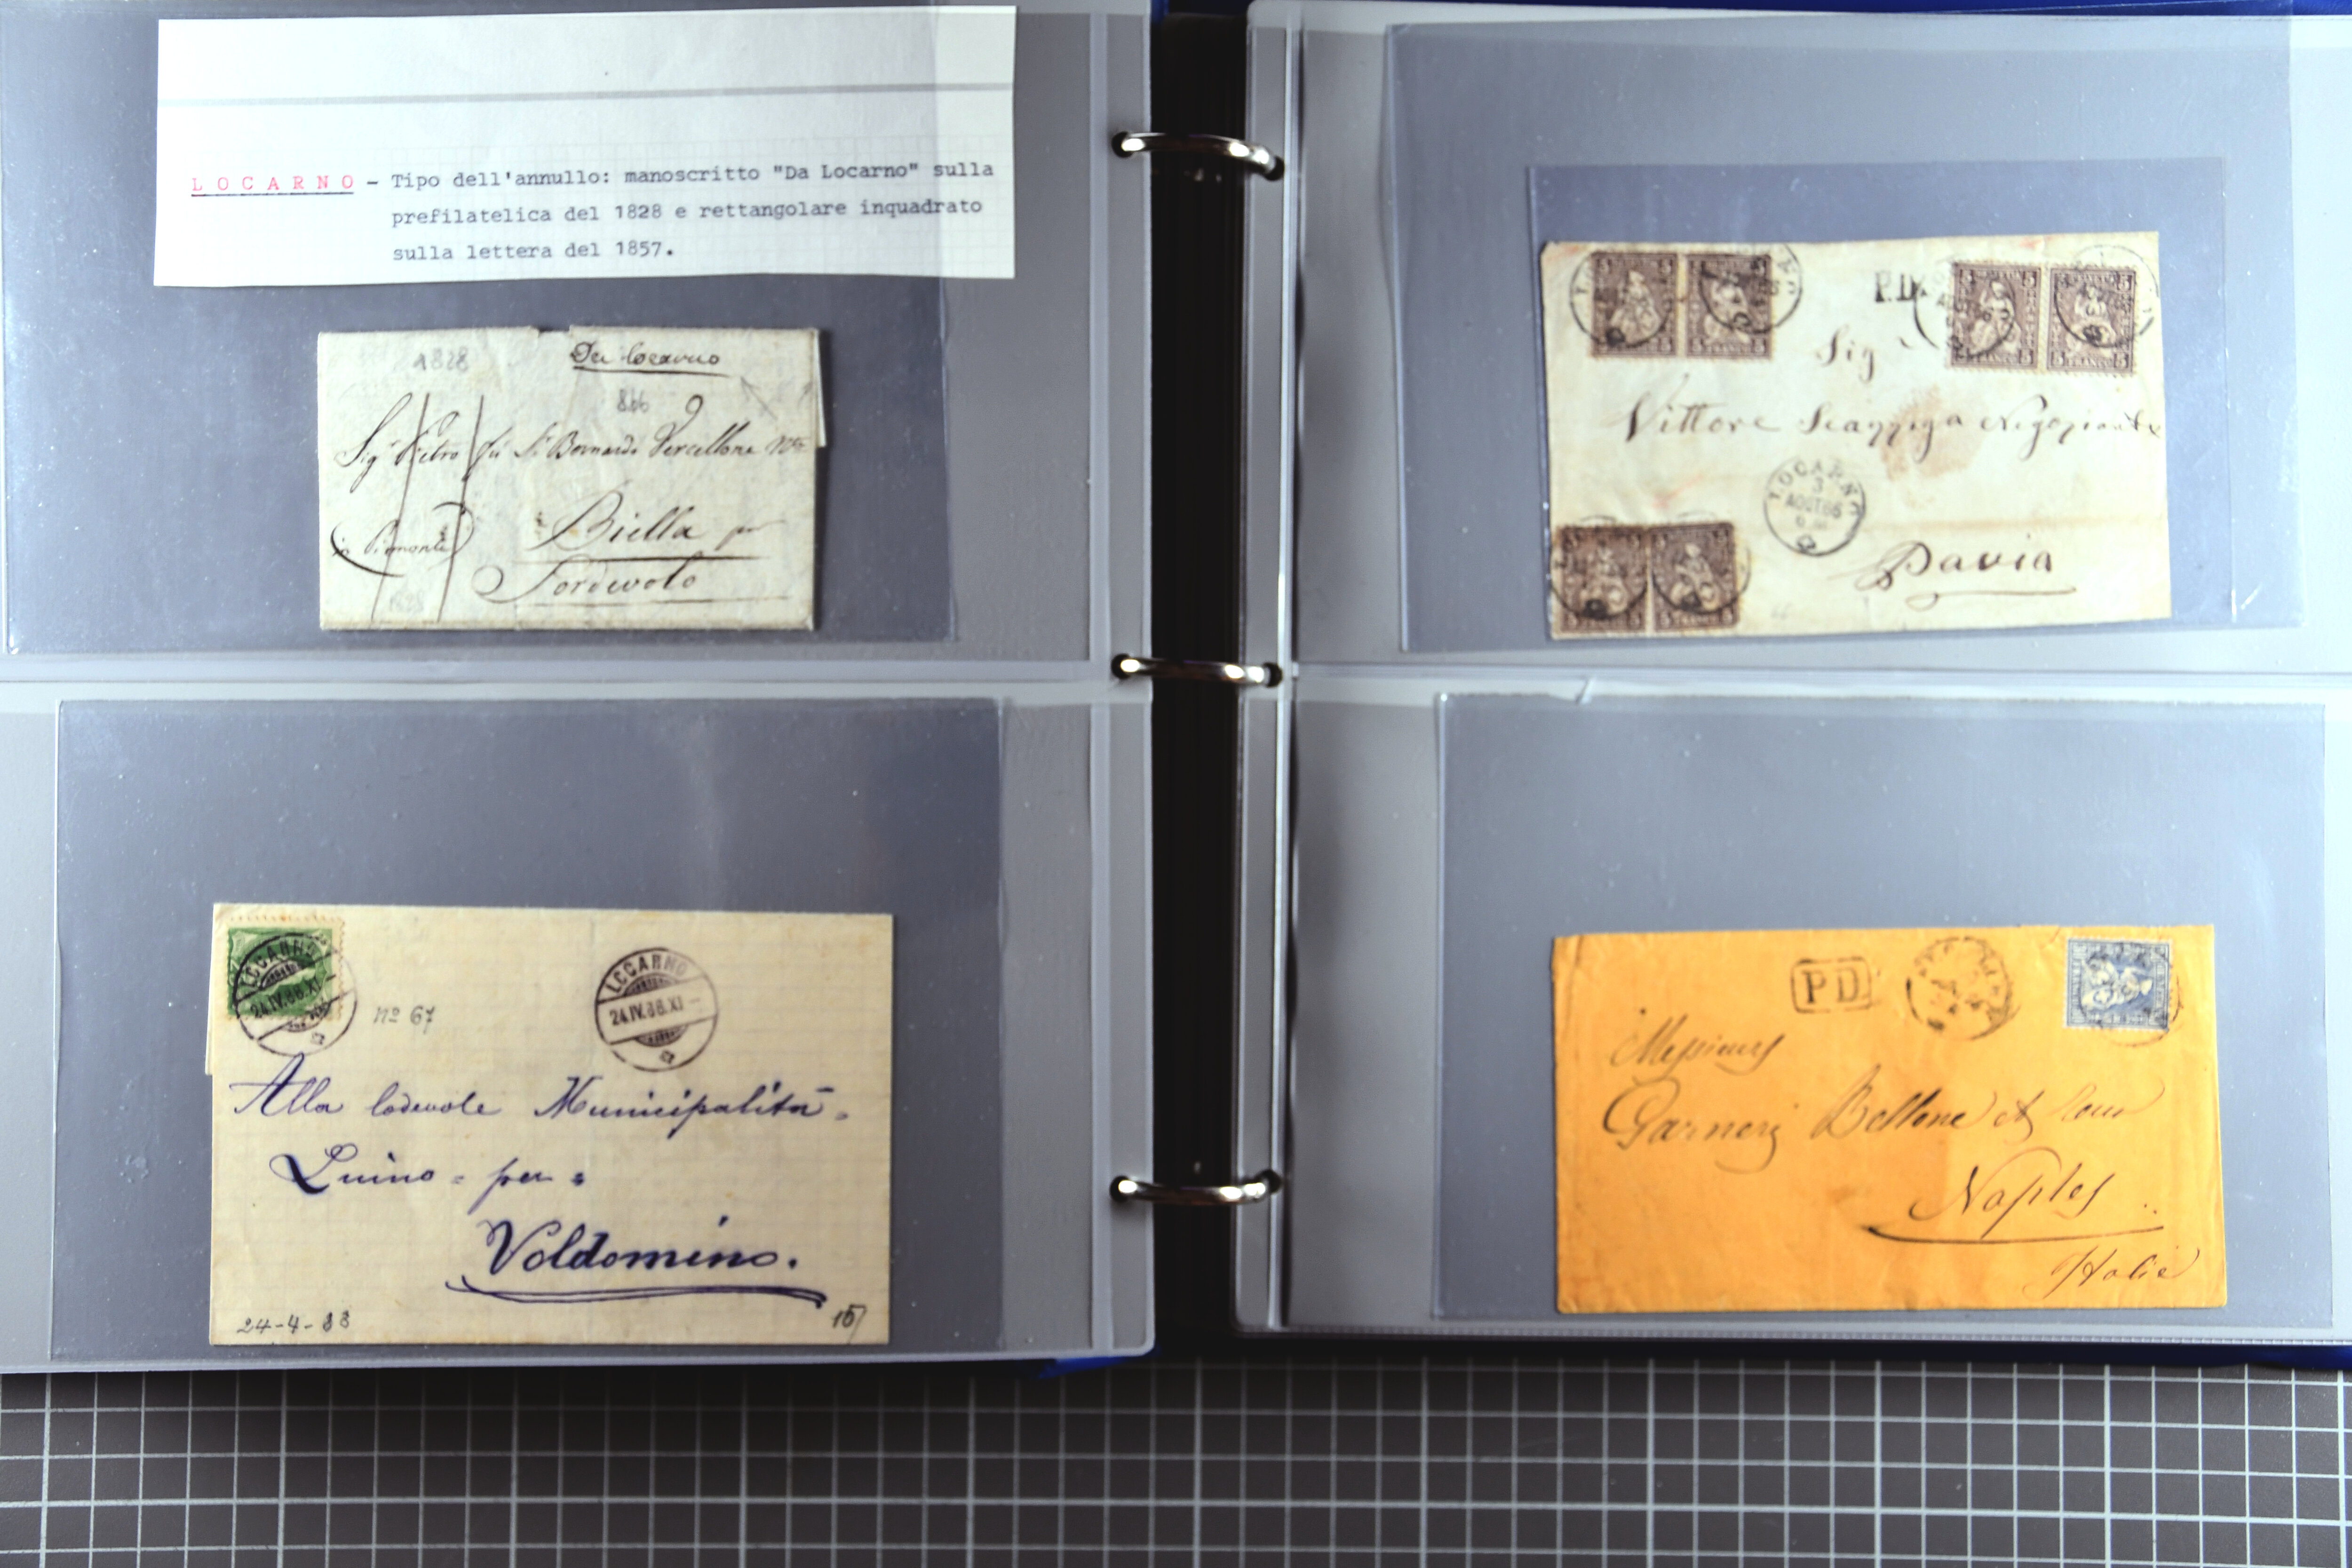 L O C A R N O - Tipo dell'annullo: manoscritto "Da Locarno" sulla
prefilatelica del 1828 e rettangolare inquadrato
sulla lettera del 1857.
1828
Da Locarno
866
Sig Pietro fù Bernardo Vercellone
Biella per
in Piemonte
Sordevolo
1828
LOCARNO
24.IV.88.XI
LOCARNO
24.IV.88.XI
nº 67
Alla lodevole Municipalità
Luino = per =
Voldomino.
24-4-88
15
P.D.
Sig
Vittore Scazziga Negoziante
LOCARNO
3
AOUT 66
Pavia
PD
Messieurs
Garnerj Bellone et
Naples
Italie